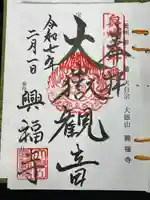 奉拝
大嶽観音
令和七年
二月一日
興福寺
大嶽山 興福寺